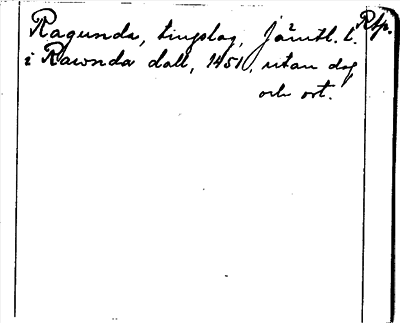 Ragunda, tingslag, Jämtl. l. Rtp.
i Rawnda dall, 1451, utan dag
och ort.